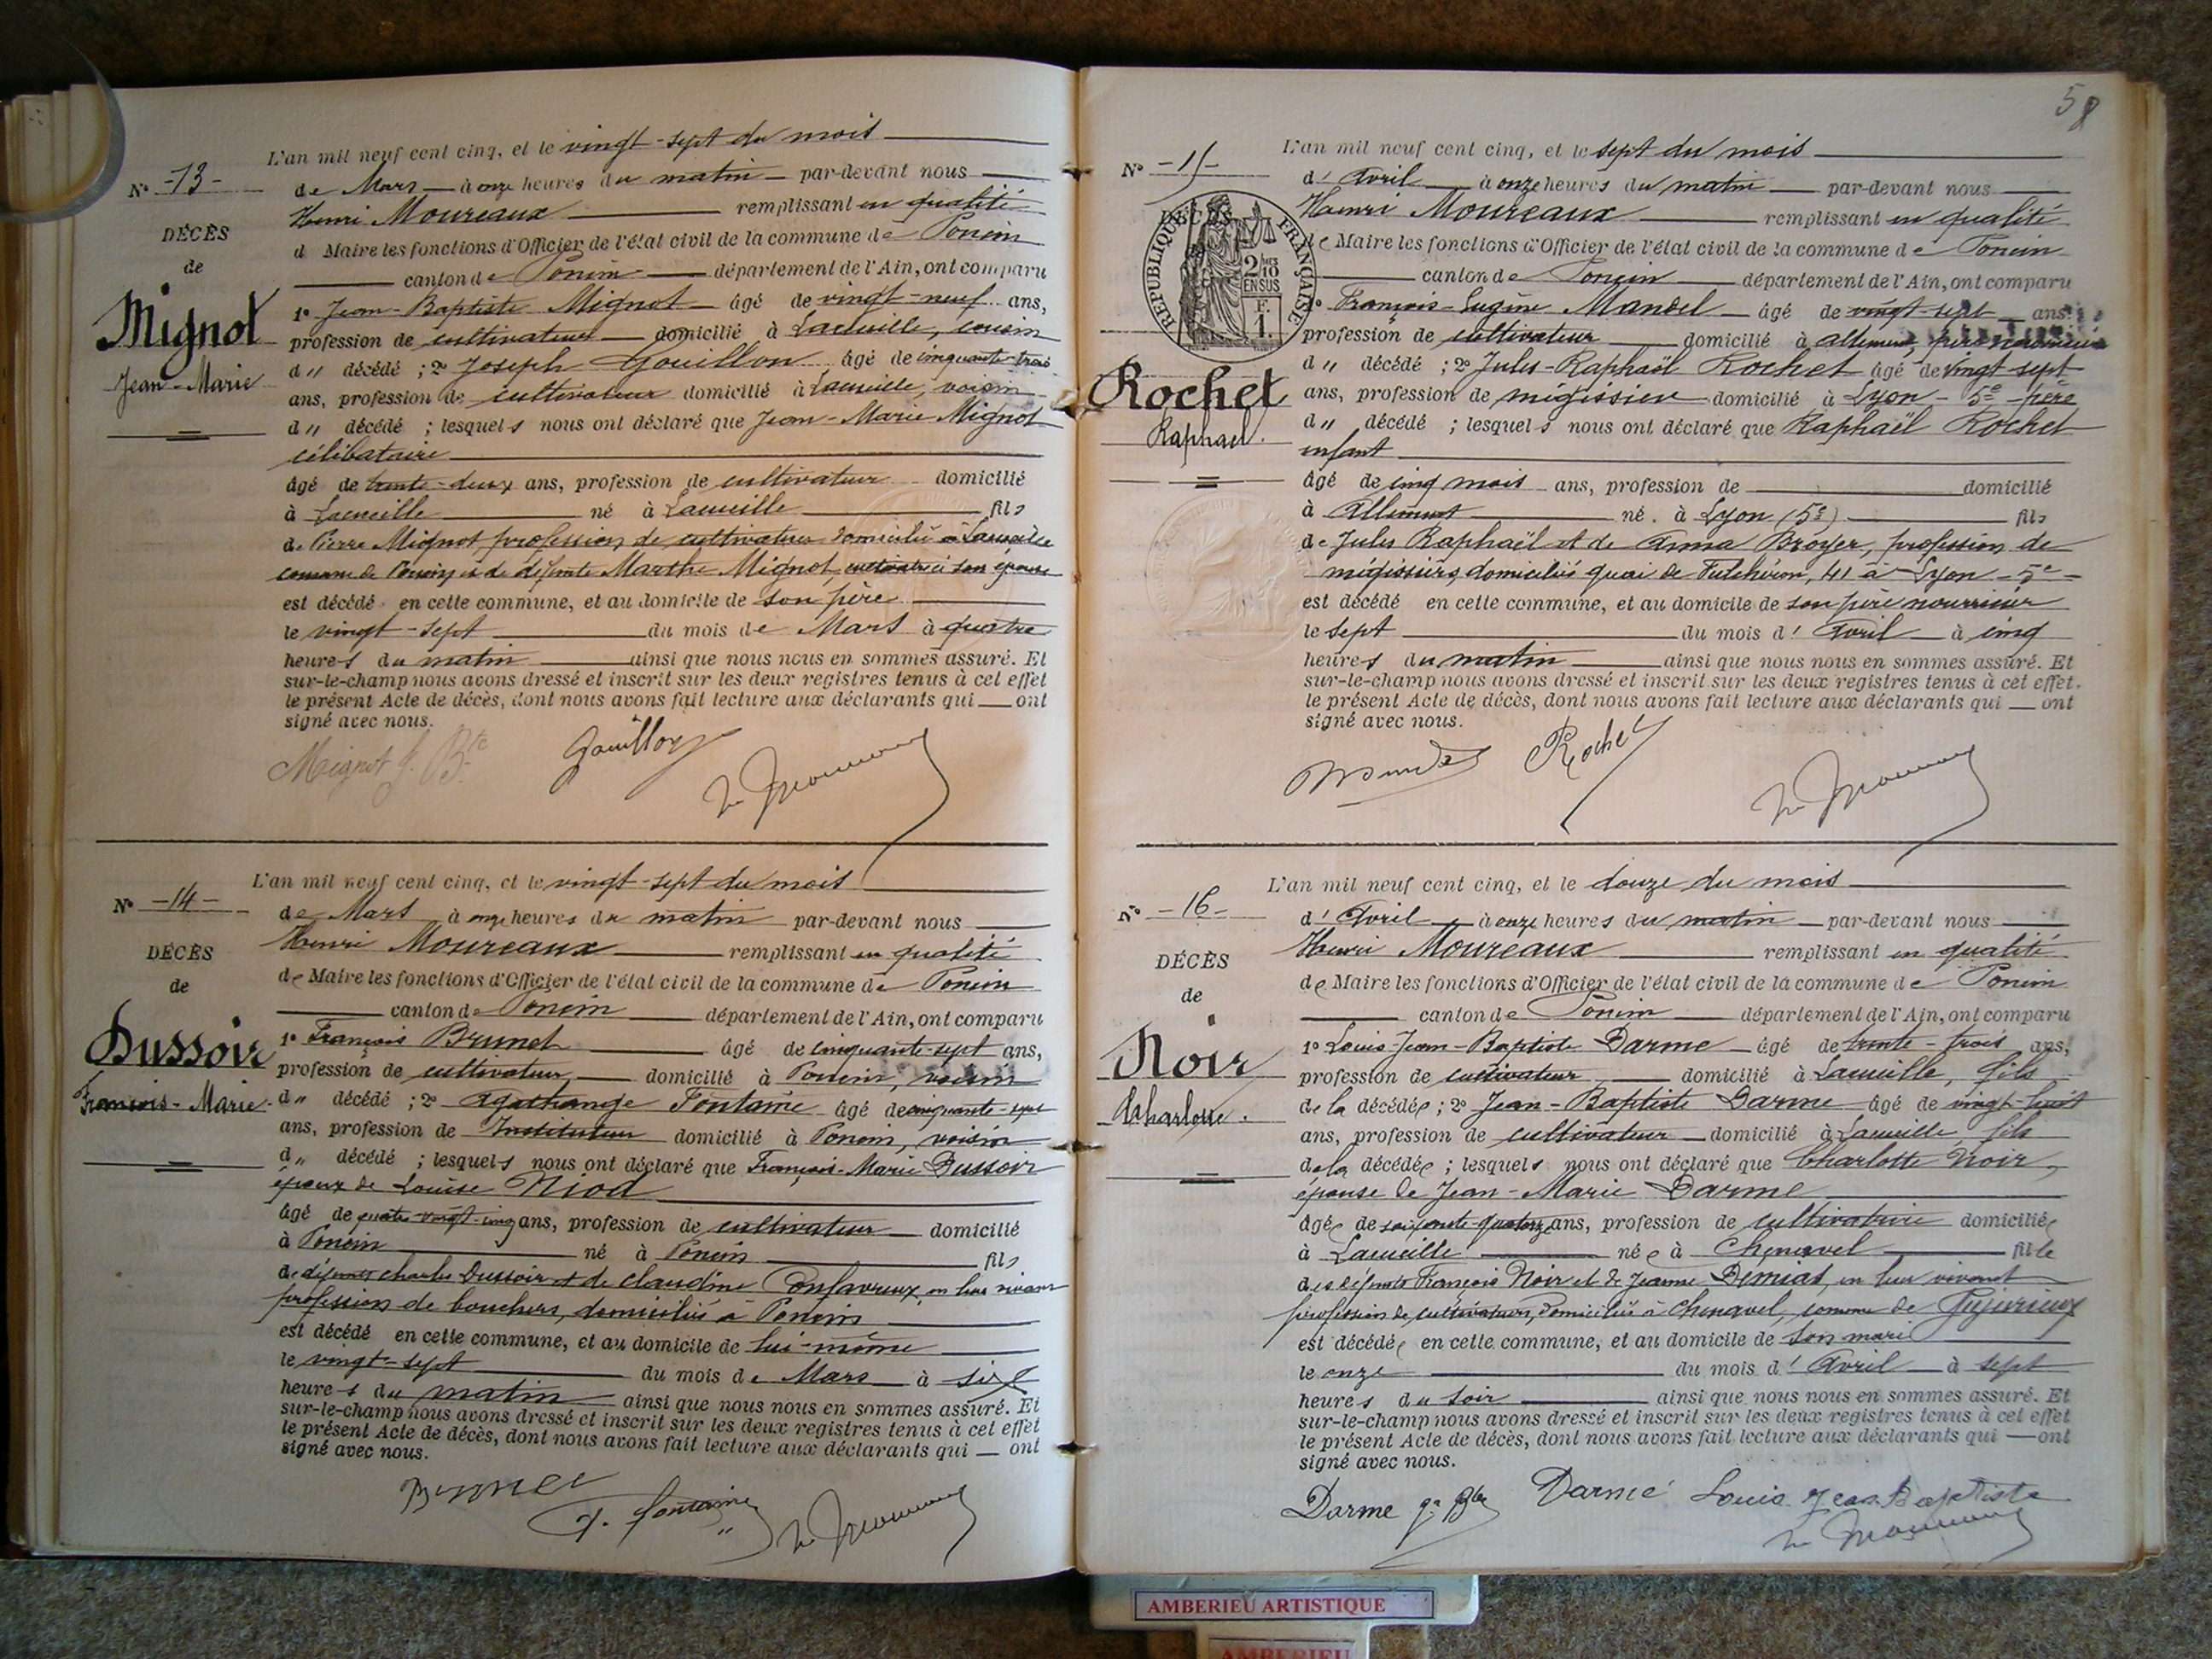 N° -13-
DÉCÈS
de
Mignot
Jean-Marie
L'an mil neuf cent cinq, et le vingt-sept du mois
de Mars à onze heures du matin par-devant nous
Henri Moureaux remplissant en qualité
d Maire les fonctions d'Officier de l'état civil de la commune de Poncin
canton de Poncin département de l'Ain, ont comparu
1° Jean-Baptiste Mignot âgé de vingt-neuf ans,
profession de cultivateur domicilié à Lacueille, cousin
d" décédé ; 2° Joseph Gouillon âgé de cinquante-trois
ans, profession de cultivateur domicilié à Lacueille, voisin
d" décédé ; lesquels nous ont déclaré que Jean-Marie Mignot
célibataire
âgé de trente-deux ans, profession de cultivateur domicilié
à Lacueille né à Lacueille fils
de Pierre Mignot profession de cultivateur domicilié à Lacueille
commune de Poncin et de défunte Marthe Mignot, cultivatrice son épouse
est décédé en cette commune, et au domicile de son père
le vingt-sept du mois de Mars à quatre
heures du matin ainsi que nous nous en sommes assuré. Et
sur-le-champ nous avons dressé et inscrit sur les deux registres tenus à cet effet
le présent Acte de décès, dont nous avons fait lecture aux déclarants qui ont
signé avec nous.
Mignot J. Bte Gouillon
N° -14-
DÉCÈS
de
Dussoir
François-Marie
L'an mil neuf cent cinq, et le vingt-sept du mois
de Mars à onze heures du matin par-devant nous
Henri Moureaux remplissant en qualité
de Maire les fonctions d'Officier de l'état civil de la commune de Poncin
canton de Poncin département de l'Ain, ont comparu
1° François Brunet âgé de cinquante-sept ans,
profession de cultivateur domicilié à Poncin, voisin
d" décédé ; 2° Agathange Fontaine âgé de cinquante-sept
ans, profession de Instituteur domicilié à Poncin, voisin
d" décédé ; lesquels nous ont déclaré que François-Marie Dussoir
époux de Louise Niod
âgé de quatre-vingt-cinq ans, profession de cultivateur domicilié
à Poncin né à Poncin fils
de défunts Charles Dussoir et de Claudine Confavreux, en leur vivant
profession de bouchers, domiciliés à Poncin
est décédé en cette commune, et au domicile de lui-même
le vingt-sept du mois de Mars à six
heures du matin ainsi que nous nous en sommes assuré. Et
sur-le-champ nous avons dressé et inscrit sur les deux registres tenus à cet effet
le présent Acte de décès, dont nous avons fait lecture aux déclarants qui ont
signé avec nous.
Brunet
Fontaine
58
N° -15-
DÉCÈS
RÉPUBLIQUE FRANÇAISE
2/10 EN SUS
F. 1.
Rochet
Raphael.
L'an mil neuf cent cinq, et le sept du mois
d' Avril à onze heures du matin par-devant nous
Henri Moureaux remplissant en qualité
de Maire les fonctions d'Officier de l'état civil de la commune de Poncin
canton de Poncin département de l'Ain, ont comparu
1° François-Eugène Mandel âgé de vingt-sept ans,
profession de cultivateur domicilié à Allement, père nourricier
d" décédé ; 2° Jules-Raphaël Rochet âgé de vingt sept
ans, profession de mégissier domicilié à Lyon - 5e - père
d" décédé ; lesquels nous ont déclaré que Raphaël Rochet
enfant
âgé de cinq mois ans, profession de domicilié
à Allement né à Lyon (5e) fils
de Jules Raphaël et de Anna Broyer, profession de
mégissiers, domiciliés quai de Fulchiron, 41 à Lyon - 5e -
est décédé en cette commune, et au domicile de son père nourricier
le sept du mois d' Avril à cinq
heures du matin ainsi que nous nous en sommes assuré. Et
sur-le-champ nous avons dressé et inscrit sur les deux registres tenus à cet effet.
le présent Acte de décès, dont nous avons fait lecture aux déclarants qui ont
signé avec nous.
Rochet
N° -16-
DÉCÈS
de
Noir
Charlotte.
L'an mil neuf cent cinq, et le douze du mois
d' Avril à onze heures du matin par-devant nous
Henri Moureaux remplissant en qualité
de Maire les fonctions d'Officier de l'état civil de la commune de Poncin
canton de Poncin département de l'Ain, ont comparu
1° Louis-Jean-Baptiste Darme âgé de trente-trois ans,
profession de cultivateur domicilié à Lacueille, fils
de la décédée ; 2° Jean-Baptiste Darme âgé de vingt-huit
ans, profession de cultivateur domicilié à Lacueille, fils
de la décédée ; lesquels nous ont déclaré que Charlotte Noir,
épouse de Jean-Marie Darme
âgée de soixante-quatorze ans, profession de cultivatrice domiciliée
à Lacueille née à Chenavel fille
des défunts François Noir et de Jeanne Demiat, en leur vivant
profession de cultivateurs, domiciliés à Chenavel, commune de Jujurieux
est décédée en cette commune, et au domicile de son mari
le onze du mois d' Avril à sept
heures du soir ainsi que nous nous en sommes assuré. Et
sur-le-champ nous avons dressé et inscrit sur les deux registres tenus à cet effet
le présent Acte de décès, dont nous avons fait lecture aux déclarants qui ont
signé avec nous.
Darme Jn Bte Darme Louis Jean Baptiste
AMBERIEU ARTISTIQUE
AMBERIEU